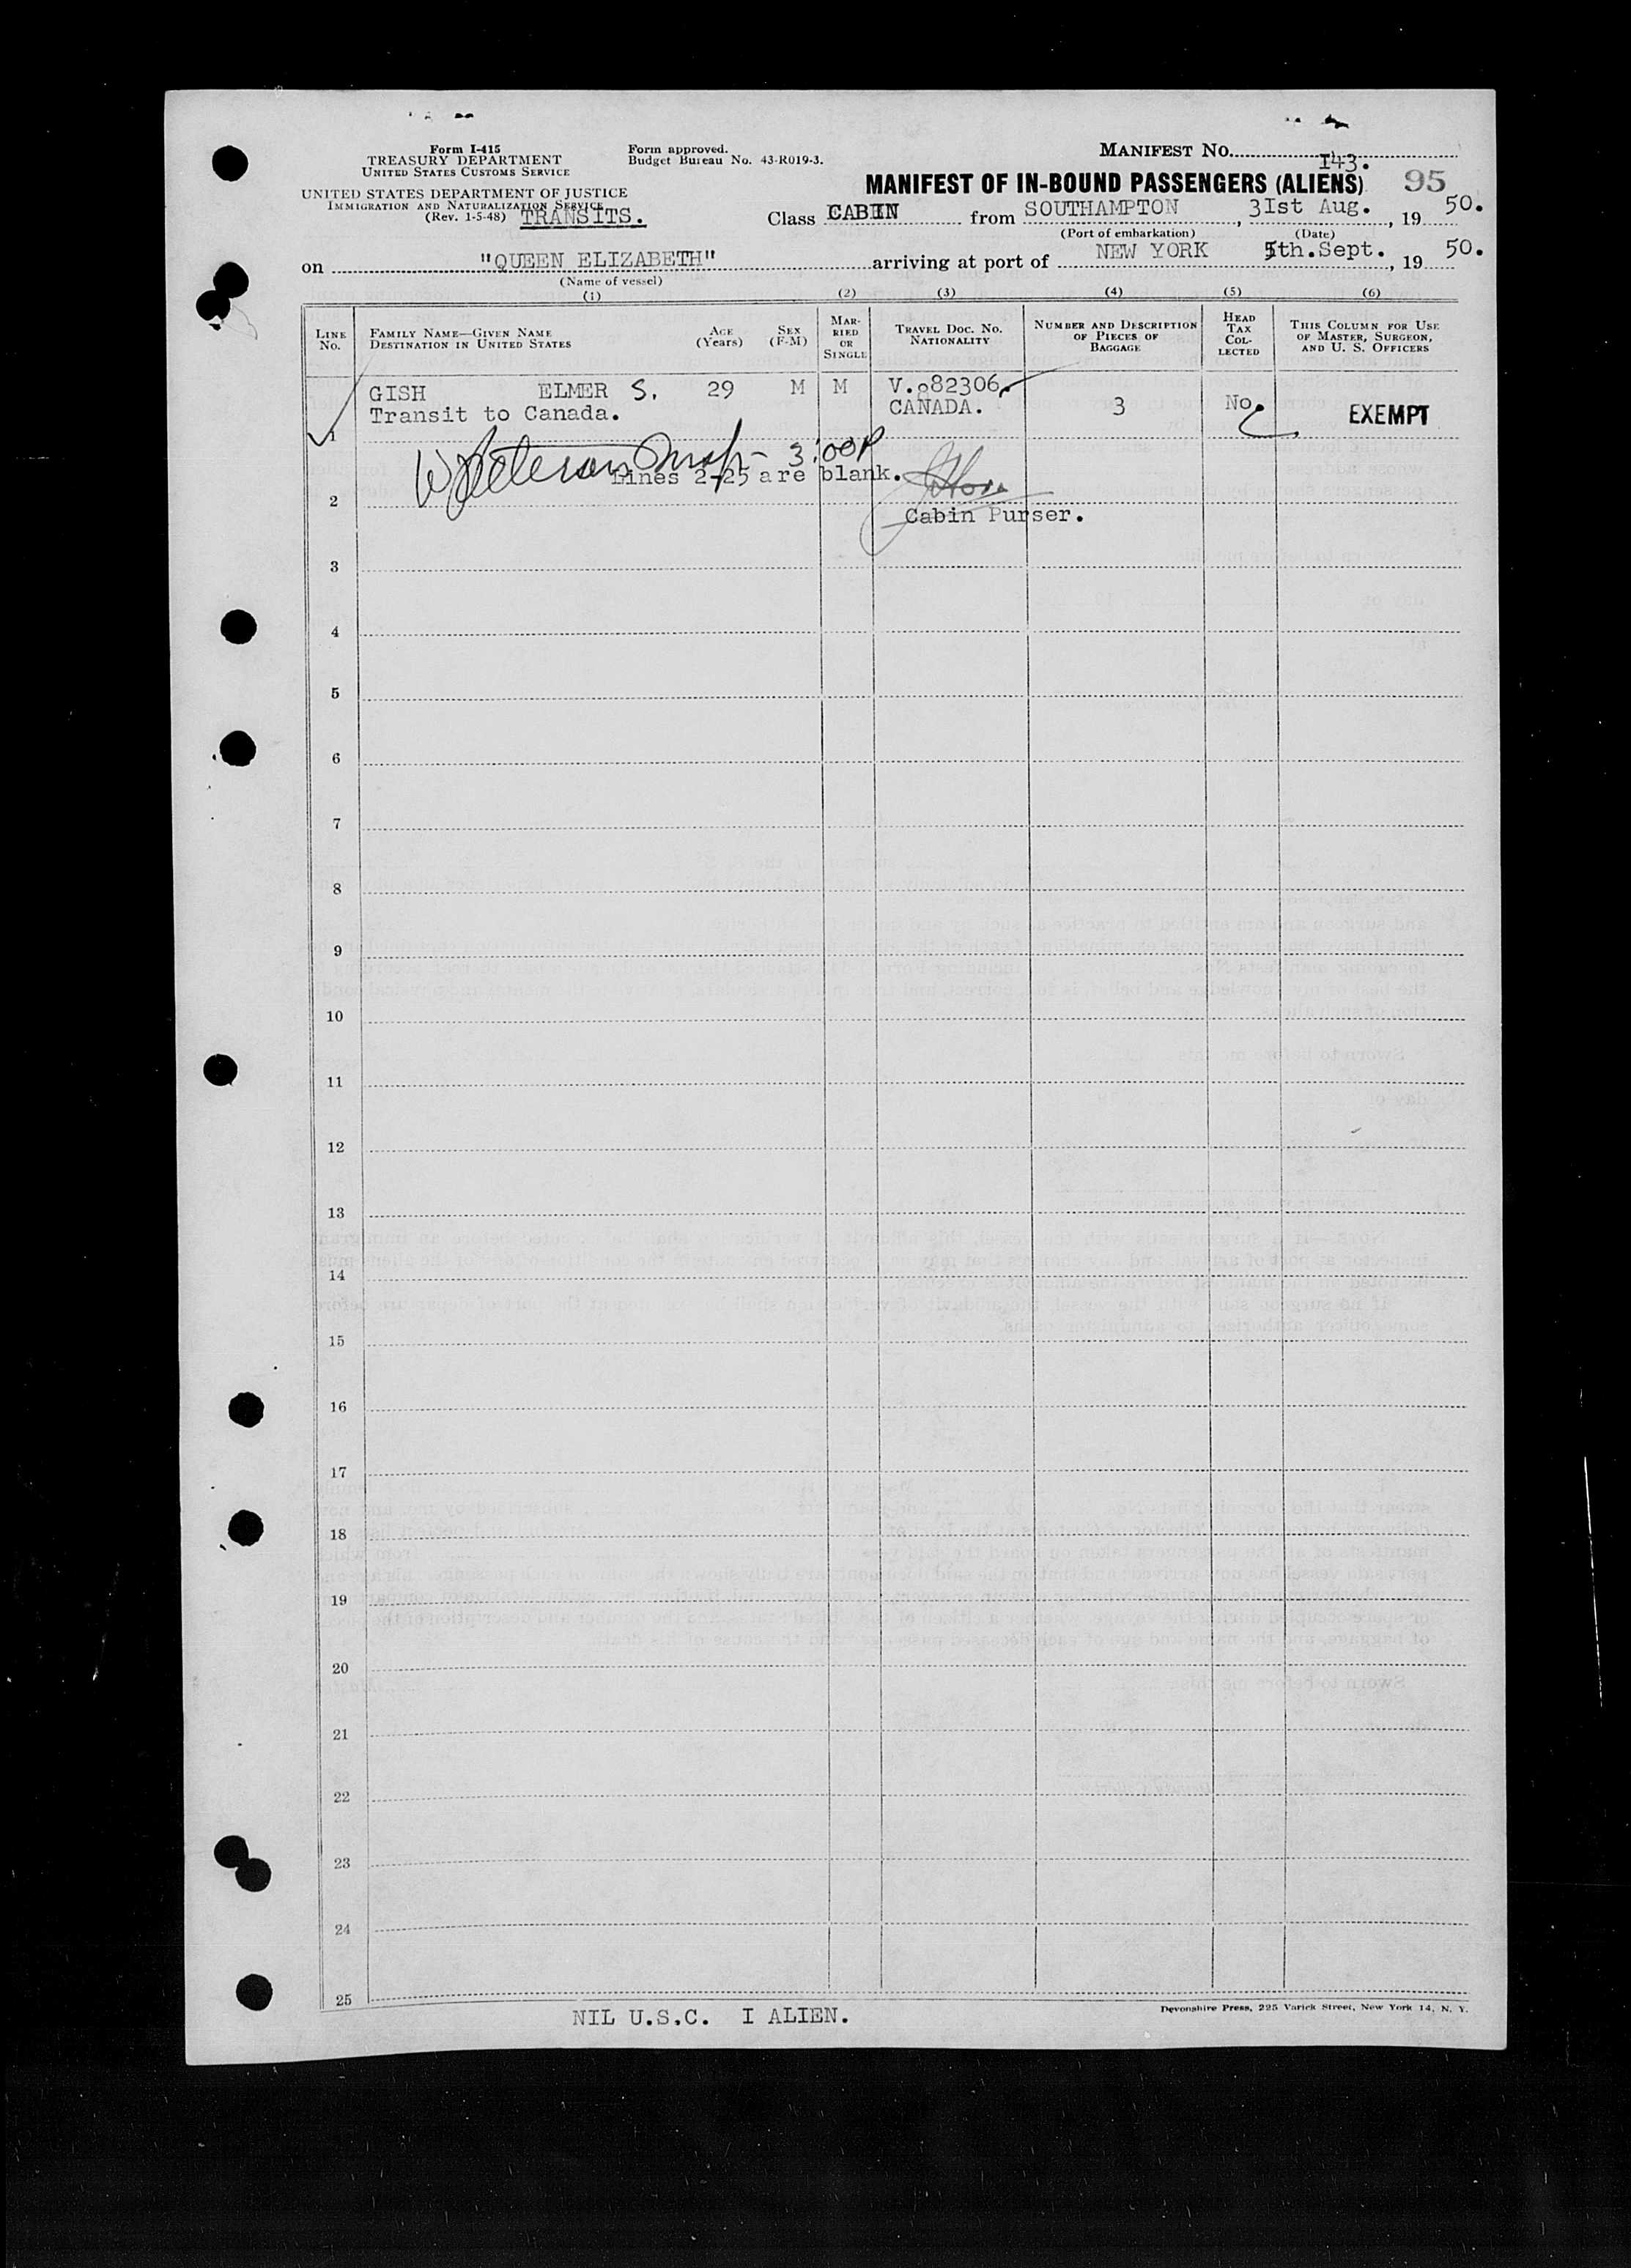 Form I-415
TREASURY DEPARTMENT
UNITED STATES CUSTOMS SERVICE
UNITED STATES DEPARTMENT OF JUSTICE
IMMIGRATION AND NATURALIZATION SERVICE
(Rev. 1-5-48) TRANSITS.
Form approved.
Budget Bureau No. 43-R019-3.
MANIFEST NO. 143.
MANIFEST OF IN-BOUND PASSENGERS (ALIENS) 95
Class CABIN from SOUTHAMPTON, 3Ist Aug., 19 50.
(Port of embarkation) (Date)
on "QUEEN ELIZABETH" arriving at port of NEW YORK 5th.Sept., 19 50.
(Name of vessel)
(1) (2) (3) (4) (5) (6)
LINE No. FAMILY NAME—GIVEN NAME DESTINATION IN UNITED STATES AGE (Years) SEX (F-M) MARRIED OR SINGLE TRAVEL DOC. NO. NATIONALITY NUMBER AND DESCRIPTION OF PIECES OF BAGGAGE HEAD TAX COLLECTED THIS COLUMN FOR USE OF MASTER, SURGEON, AND U. S. OFFICERS
GISH ELMER S. 29 M M V.982306.
Transit to Canada. CANADA. 3 No. EXEMPT
1
3:00P
Lines 2-25 are blank.
2
Cabin Purser.
3
4
5
6
7
8
9
10
11
12
13
14
15
16
17
18
19
20
21
22
23
24
25
NIL U.S.C. I ALIEN.
Devonshire Press, 225 Varick Street, New York 14, N. Y.